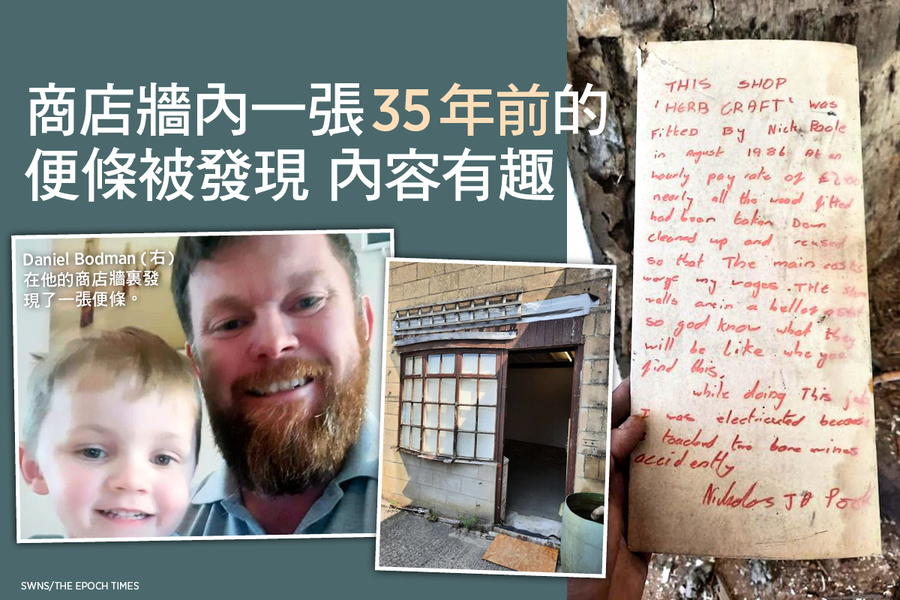 商店牆內一張35年前的
便條被發現 內容有趣
Daniel Bodman (右)
在他的商店牆裏發
現了一張便條。
SWNS/THE EPOCH TIMES
THIS SHOP
'HERB CRAFT' was
Fitted By Nick Poole
in August 1986 At an
hourly pay rate of
nearly all the wood fitted
had been taken Down
cleaned up and reused
so that The main costs
my wages. THE
walls are in a
so god know what they
will be like when you
find this.
while doing This job
I was electricuted because
I touched two bare wires
accidently
Nicholas